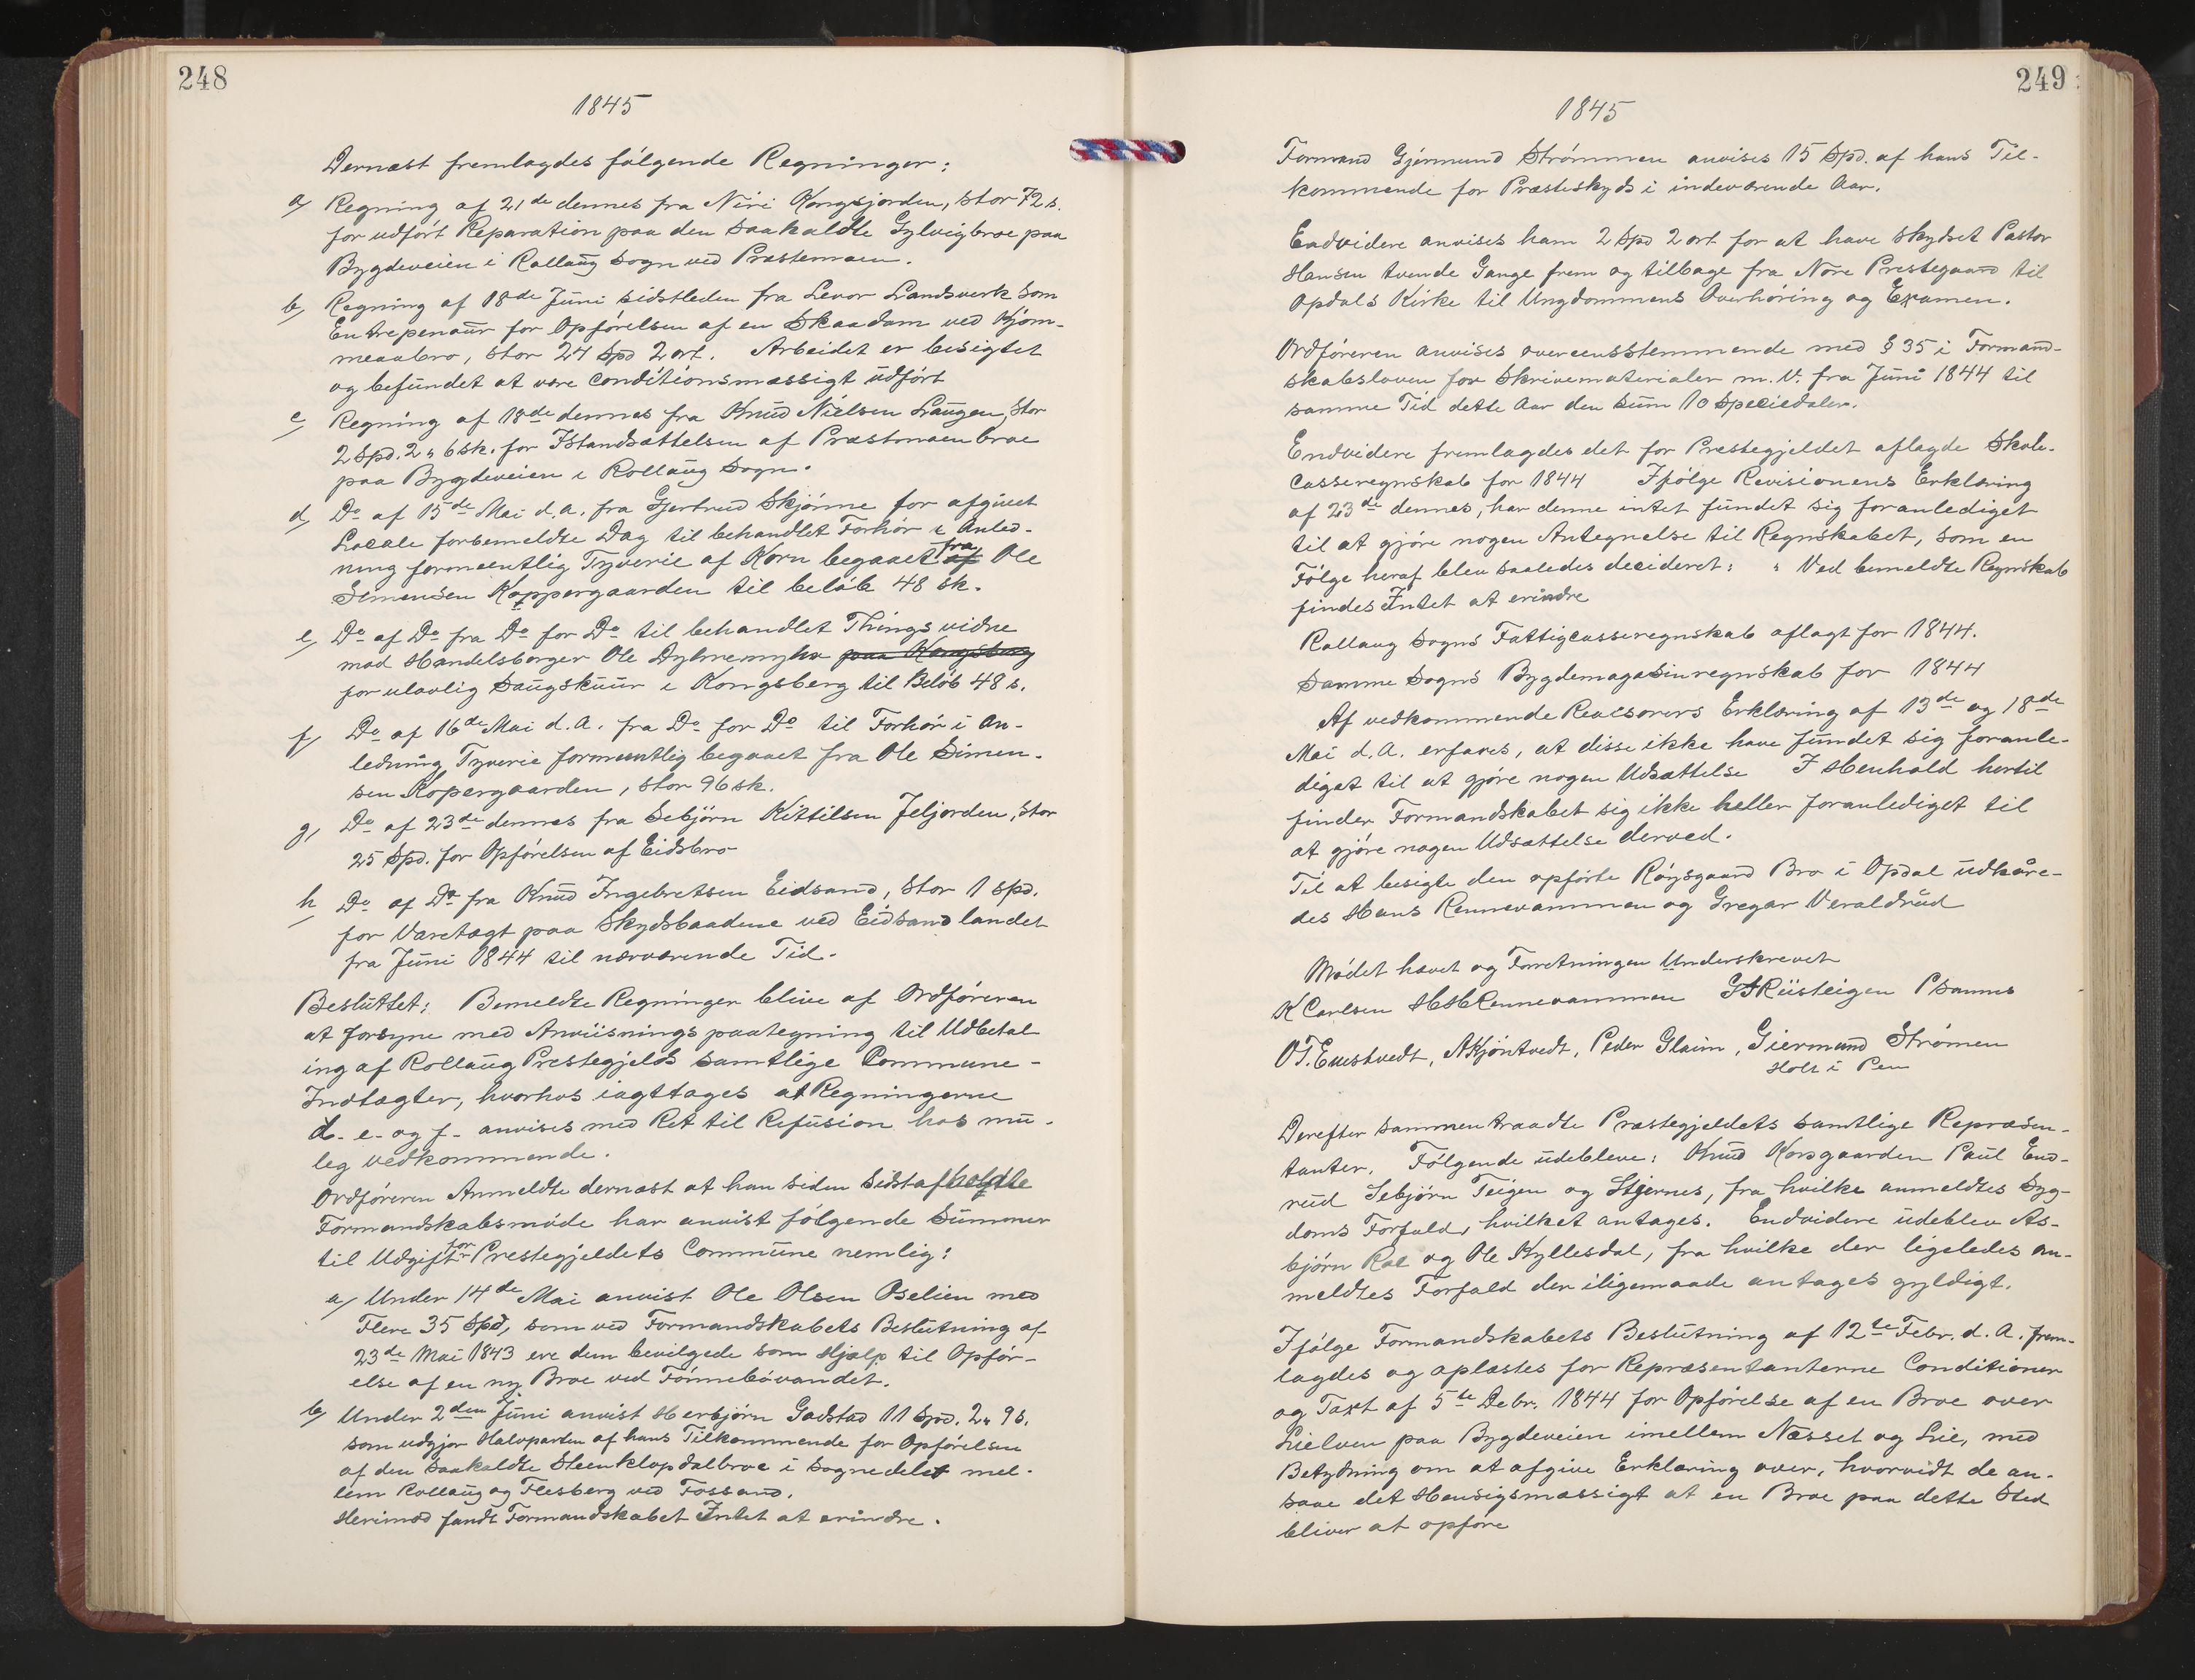 248
1845
Dernæst fremlagdes følgende Regninger:
a) Regning af 21de dennes fra Niri Kongsjorden, stor 72 s.
for udført Reparation paa den saakaldte Gylvigbroe paa
Bygdeveien i Rollaug Sogn ved Præstemoen.
b) Regning af 18de Juni sidstleden fra Levor Landsverk som
Entrepenaur for Opførelsen af en Skaadam ved Kjom-
meaabro, stor 24 Spd 2 ort. Arbeidet er besigtet
og befundet at være conditionsmæssigt udført
c) Regning af 18de dennes fra Knud Nielsen Laugen, stor
2 Spd. 2 „ 6 sk. for Istandsættelsen af Præstmoenbroe
paa Bygdeveien i Rollaug Sogn.
d) Do af 15de Mai d.a. fra Gjertrud Skjønne for afgivet
Locale forbemeldte Dag til behandlet Forhør i Anled-
ning formeentlig Tyverie af Korn begaaet af fra Ole
Simensen Koppergaarden til beløb 48 sk.
e) Do af Do fra Do for Do til behandlet Things vidne
mod Handelsborger Ole Dylmemyhr paa Kongsberg
for ulovlig Saugskuur i Kongsberg til Beløb 48 s.
f) Do af 16de Mai d.A. fra Do for Do til Forhør i An-
ledning Tyverie formentlig begaaet fra Ole Simen-
sen Kopergaarden, stor 96 sk.
g) Do af 23de dennes fra Sebjørn Kittilsen Jeljorden, stor
25 Spd. for Opførelsen af Eidsbro
h) Do af Do fra Knud Ingebretsen Eidsand, stor 1 spd.
for Varetægt paa Skydsbaadene ved Eidsandlandet
fra Juni 1844 til nærværende Tid.
Besluttet: Bemeldte Regninger blive af Ordføreren
at forsyne med Anviisnings paategning til Udbetal
ing af Rollaug Prestegjelds samtlige Commune-
Indtægter, hvorhos iagttages at Regningerne
d- e- og f- anvises med Ret til Refusion hos mu-
leg vedkommende.
Ordføreren Anmeldte dernæst at han siden sidst afholdte
Formandskabsmøde har anvist følgende Summer
til Udgift for Prestegjeldets Commune nemlig:
a) Under 14de Mai anvist Ole Olsen Øselien med
Flere 35 Spd, som ved Formandskabets Beslutning af
23de Mai 1843 ere dem bevilgede som Hjælp til Opfør-
else af en ny Broe ved Tønnebøvandet.
b) Under 2den Juni anvist Herbjørn Gadstad 11 Spd. 2 „ 9 s.
som udgjør Halvparten af hans Tilkommende for Opførelsen
af den saakaldte Steenklopdalbroe i Sognedelet mel-
lem Rollaug og Flesberg ved Fossand.
Herimod fandt Formandskabet Intet at erindre.
249
1845
Formand Gjermund Strømmen anvises 15 Spd. af hans Til-
kommende for Præsteskyds i indeværende Aar.
Endvidere anvises ham 2 Spd 2 ort for at have Skydset Pastor
Hansen tvende Gange frem og tilbage fra Nore Prestegaard til
Opdals Kirke til Ungdommens Overhøring og Examen.
Ordføreren anvises overeensstemmende med § 35 i Formand-
skabsloven for Skrivematerialer m. V. fra Juni 1844 til
samme Tid dette Aar den sum 10 Speciedaler.
Endvidere fremlagdes det for Prestegjeldet aflagde Skole-
casseregnskab for 1844 Ifølge Revisionens Erklæring
af 23de dennes, har denne intet fundet sig foranlediget
til at gjøre nogen Antegnelse til Regnskabet, som en
Følge heraf blev saaledes decideret: „ Ved bemeldte Regnskab
findes Intet at erindre
Rollaug Sogns Fattigcasseregnskab aflagt for 1844.
Samme Sogns Bygdemagasinregnskab for 1844
Af vedkommende Revisorers Erklæring af 13de og 18de
Mai d.A. erfares, at disse ikke have fundet sig foranle-
diget til at gjøre nogen Udsættelse I Henhold hertil
finder Formandskabet sig ikke heller foranlediget til
at gjøre nogen Udsættelse derved.
Til at besigte den opførte Røysgaard Bro i Opdal udkåre-
des Hans Rennevammen og Gregar Veraldrud
Mødet hævet og Forretningen Underskrevet
K Carlsen HHRennevammen GTRiisteigen PSannes
OT.Enestvedt, AKjøntvedt, Peder Glaim, Giermund Strømen
Holt i Pen
Derefter sammentraadte Præstegjeldets samtlige Repræsen-
tanter. Følgende udebleve: Knud Korsgaarden Paul End-
rud Sebjørn Teigen og Stjernes, fra hvilke anmeldtes Syg-
doms Forfald, hvilket antages. Endvidere udeblev As-
bjørn Roe og Ole Kyllesdal, fra hvilke der ligeledes an-
meldtes Forfald der iligemaade antages gyldigt.
Ifølge Formandskabets Beslutning af 12te Febr. d. A. frem-
lagdes og oplæstes for Repræsentanterne Conditioner
og Taxt af 5te Debr. 1844 for Opførelse af en Broe over
Lielven paa Bygdeveien imellem Næsset og Lie, med
Betydning om at afgive Erklæring over, hvorvidt de an-
saae det Hensigsmæssigt at en Broe paa dette Sted
bliver at opføre